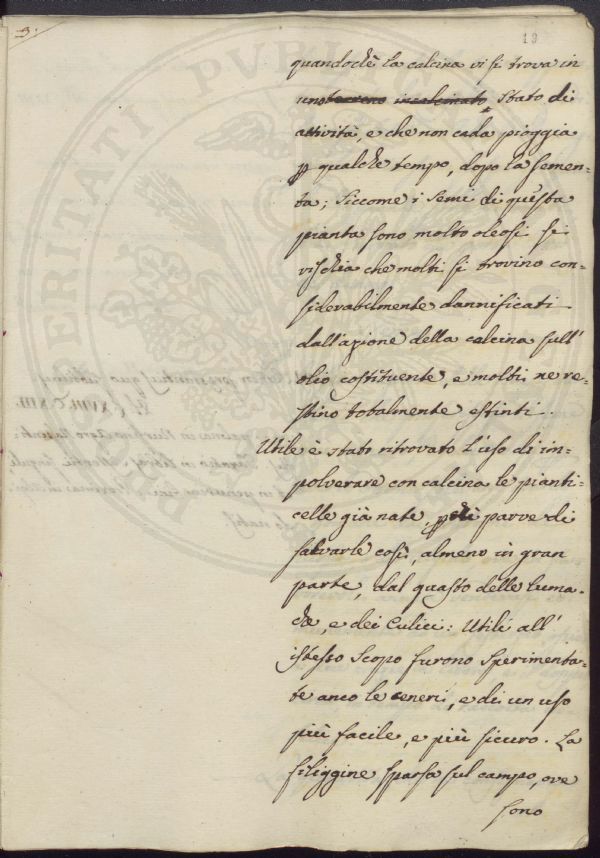 3.
19
quandochè la calcina vi si trova in
uno terreno incalcinato stato di
attività, e che non cada pioggia
p qualche tempo, dopo la semen=
ta; siccome i semi di questa
pianta sono molto oleosi si
rischia che molti si trovino con=
siderabilmente dannificati
dall'azione della calcina sull'
olio costituente, e molti ne re=
stino totalmente estinti.
Utile è stato ritrovato l'uso di im=
polverare con calcina le pianti=
celle già nate, pchè parve di
salvarle così, almeno in gran
parte, dal guasto delle luma=
che, e dei Culici: Utili all'
istesso scopo furono sperimenta=
te anco le ceneri, e di un uso
più facile, e più sicuro. La
filiggine sparsa sul campo, ove
sono
PROSPERITATI PUBLICAE